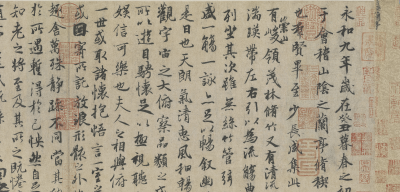 永和九年歲在癸丑暮春之初
于會稽山陰之蘭亭脩稧
也群賢畢至少長咸集此
有崇山峻領茂林脩竹又有清流
湍暎帶左右引以為流觴曲
列坐其次雖無絲竹管弦
盛一觴一詠亦足以暢敘幽
是日也天朗氣清惠風和暢
觀宇宙之大俯察品類之
所以遊目騁懷足以極視聽
娛信可樂也夫人之相與俯
一世或取諸懷抱悟言一室之
或因寄所託放浪形骸之外
趣舍萬殊靜躁不同當其
於所遇蹔得於己快然自
知老之將至及其所之既